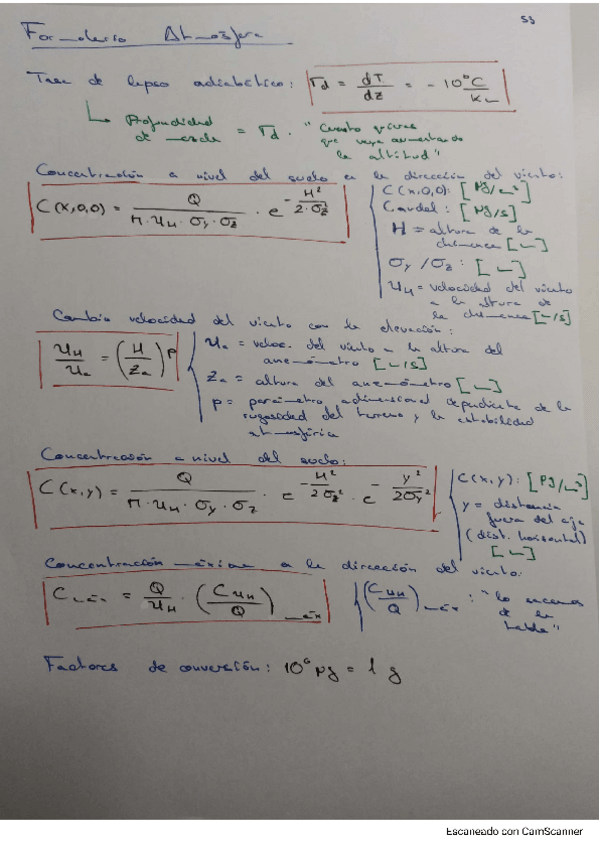 53
Formulario Atmósfera
Tasa de lapso adiabático: Γd = dT/dz = -10 °C/km
Profundidad de mezcla = Γd · "Cuantos grados que vaya aumentando la altitud"
Concentración a nivel del suelo en la dirección del viento:
C(x,0,0) = Q/(π·u_H·σy·σz) · e^(-H²/(2·σz²))
C(x,0,0): [μg/m³]
Caudal: [μg/s]
H = altura de la chimenea [m]
σy/σz: [m]
u_H = velocidad del viento a la altura de la chimenea [m/s]
Cambio velocidad del viento con la elevación:
u_H/u_a = (H/z_a)^p
u_a = veloc. del viento a la altura del anemómetro [m/s]
z_a = altura del anemómetro [m]
p = parámetro adimensional dependiente de la rugosidad del terreno y la estabilidad atmosférica
Concentración a nivel del suelo:
C(x,y) = Q/(π·u_H·σy·σz) · e^(-H²/(2σz²)) · e^(-y²/(2σy²))
C(x,y): [μg/m³]
y = distancia fuera del eje (dist. horizontal) [m]
Concentración máxima en la dirección del viento:
C_máx = Q/u_H · (C u_H/Q)_máx
(C u_H/Q)_máx : "lo sacamos de la tabla"
Factores de conversión: 10⁶ μg = 1 g
Escaneado con CamScanner